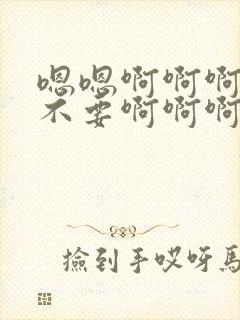 嗯嗯啊啊啊
不要啊啊啊
捡到手哎呀马